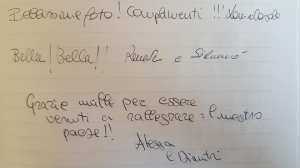 Bellissime foto! Complimenti !!!
Bella! Bella!! Renata e
Grazie mille per essere
venuti a rallegrare il nostro
paese!!
Alessia
e Dimitri